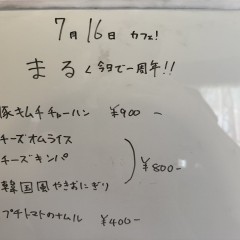 7月16日 カフェ!
まるく今日で一周年!!
豚キムチチャーハン ¥900-
チーズオムライス
チーズキンパ
¥800-
韓国風やきおにぎり
プチトマトのナムル ¥400-